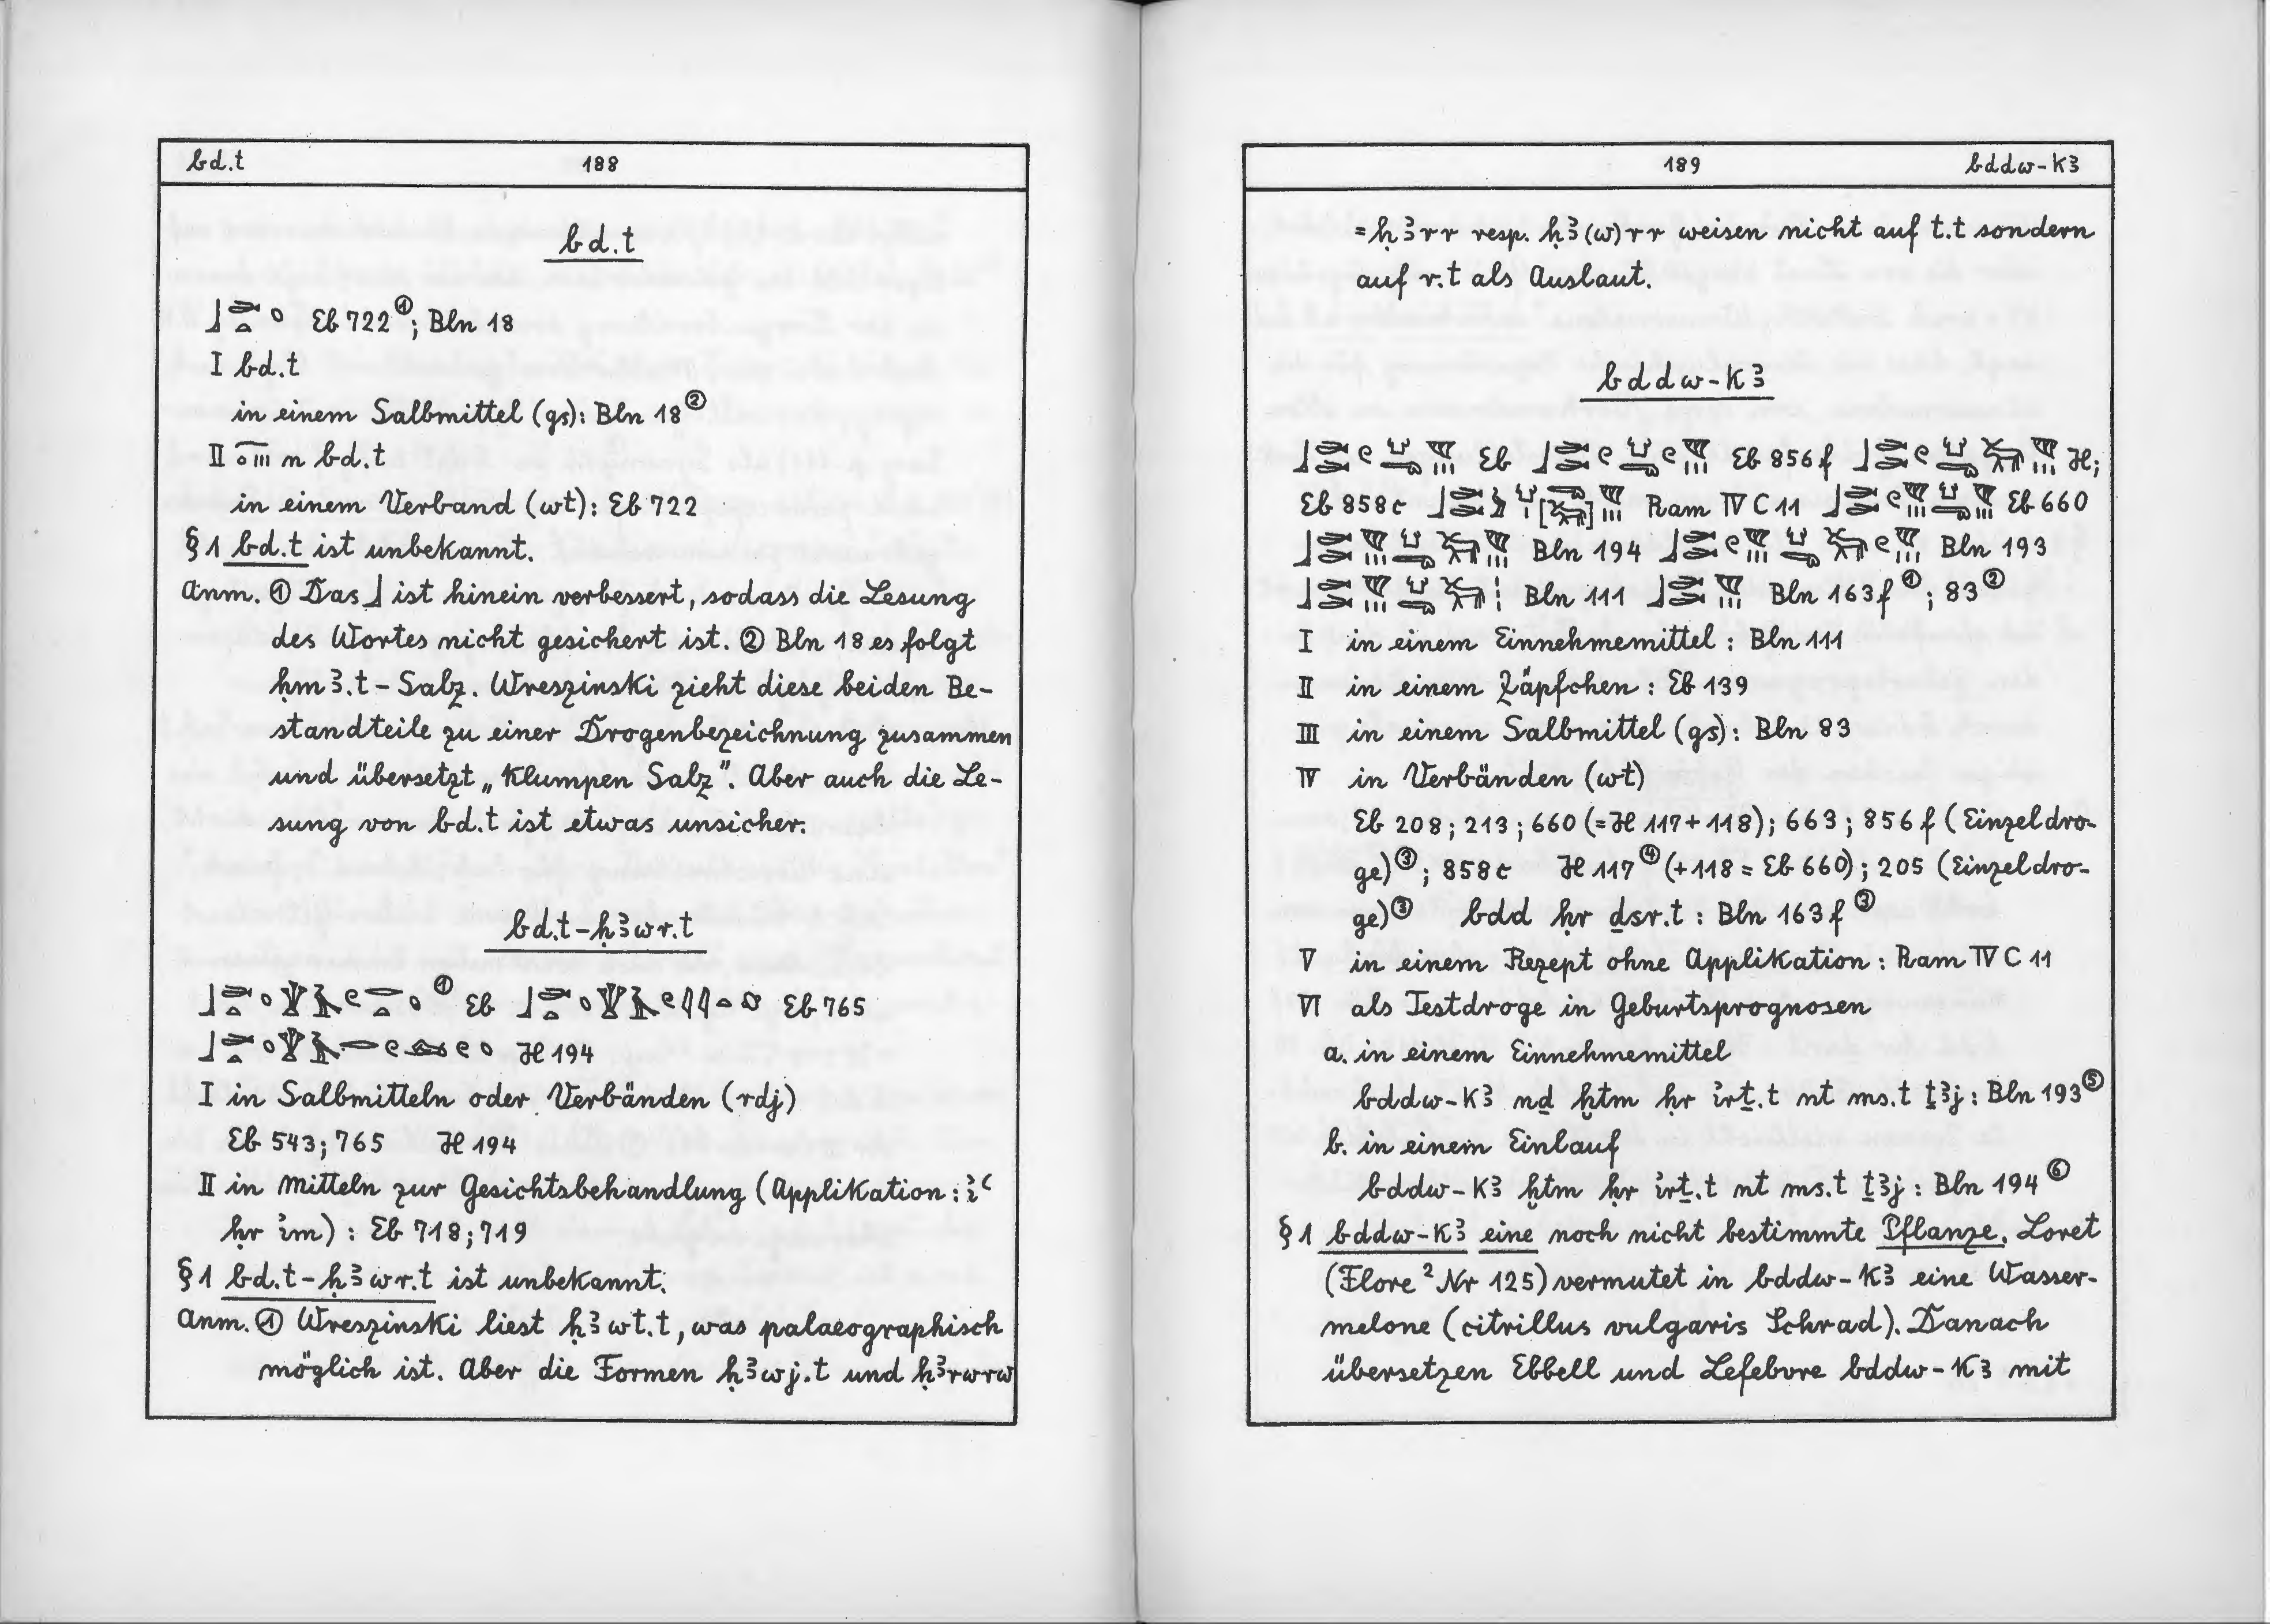 bd.t 188
bd.t
Eb 722①; Bln 18
I bd.t
in einem Salbmittel (gs): Bln 18②
II n bd.t
in einem Verband (wt): Eb 722
§ 1 bd.t ist unbekannt.
Anm. ① Das 𓃀 ist hinein verbessert, sodass die Lesung
des Wortes nicht gesichert ist. ② Bln 18 es folgt
ḥmꜣ.t - Salz. Wreszinski zieht diese beiden Be-
standteile zu einer Drogenbezeichnung zusammen
und übersetzt „Klumpen Salz". Aber auch die Le-
sung von bd.t ist etwas unsicher.
bd.t-ḥꜣwr.t
① Eb Eb 765
H 194
I in Salbmitteln oder Verbänden (rdj)
Eb 543; 765 H 194
II in Mitteln zur Gesichtsbehandlung (Applikation:
ḥr im) : Eb 718; 719
§ 1 bd.t-ḥꜣwr.t ist unbekannt.
Anm. ① Wreszinski liest ḥꜣwt.t, was palaeographisch
möglich ist. Aber die Formen ḥꜣwj.t und ḥꜣrwrw
189 bddw-kꜣ
= ḥꜣrr resp. ḥꜣ(w)rr weisen nicht auf t.t sondern
auf r.t als Auslaut.
bddw-kꜣ
Eb Eb 856f H;
Eb 858c Ram IV C 11 Eb 660
Bln 194 Bln 193
Bln 111 Bln 163f①; 83②
I in einem Einnehmemittel : Bln 111
II in einem Zäpfchen : Eb 139
III in einem Salbmittel (gs): Bln 83
IV in Verbänden (wt)
Eb 208; 213; 660 (= H 117+118); 663; 856f (Einzeldro-
ge)③; 858c H 117④ (+118 = Eb 660); 205 (Einzeldro-
ge)③ bdd ḥr dsr.t : Bln 163f③
V in einem Rezept ohne Applikation: Ram IV C 11
VI als Testdroge in Geburtsprognosen
a. in einem Einnehmemittel
bddw-kꜣ nḏ ḫtm ḥr irṯ.t nt ms.t ṯꜣj: Bln 193⑤
b. in einem Einlauf
bddw-kꜣ ḫtm ḥr irṯ.t nt ms.t ṯꜣj : Bln 194⑥
§ 1 bddw-kꜣ eine noch nicht bestimmte Pflanze. Loret
(Flore² Nr 125) vermutet in bddw-kꜣ eine Wasser-
melone (citrillus vulgaris Schrad). Danach
übersetzen Ebbell und Lefebvre bddw-kꜣ mit